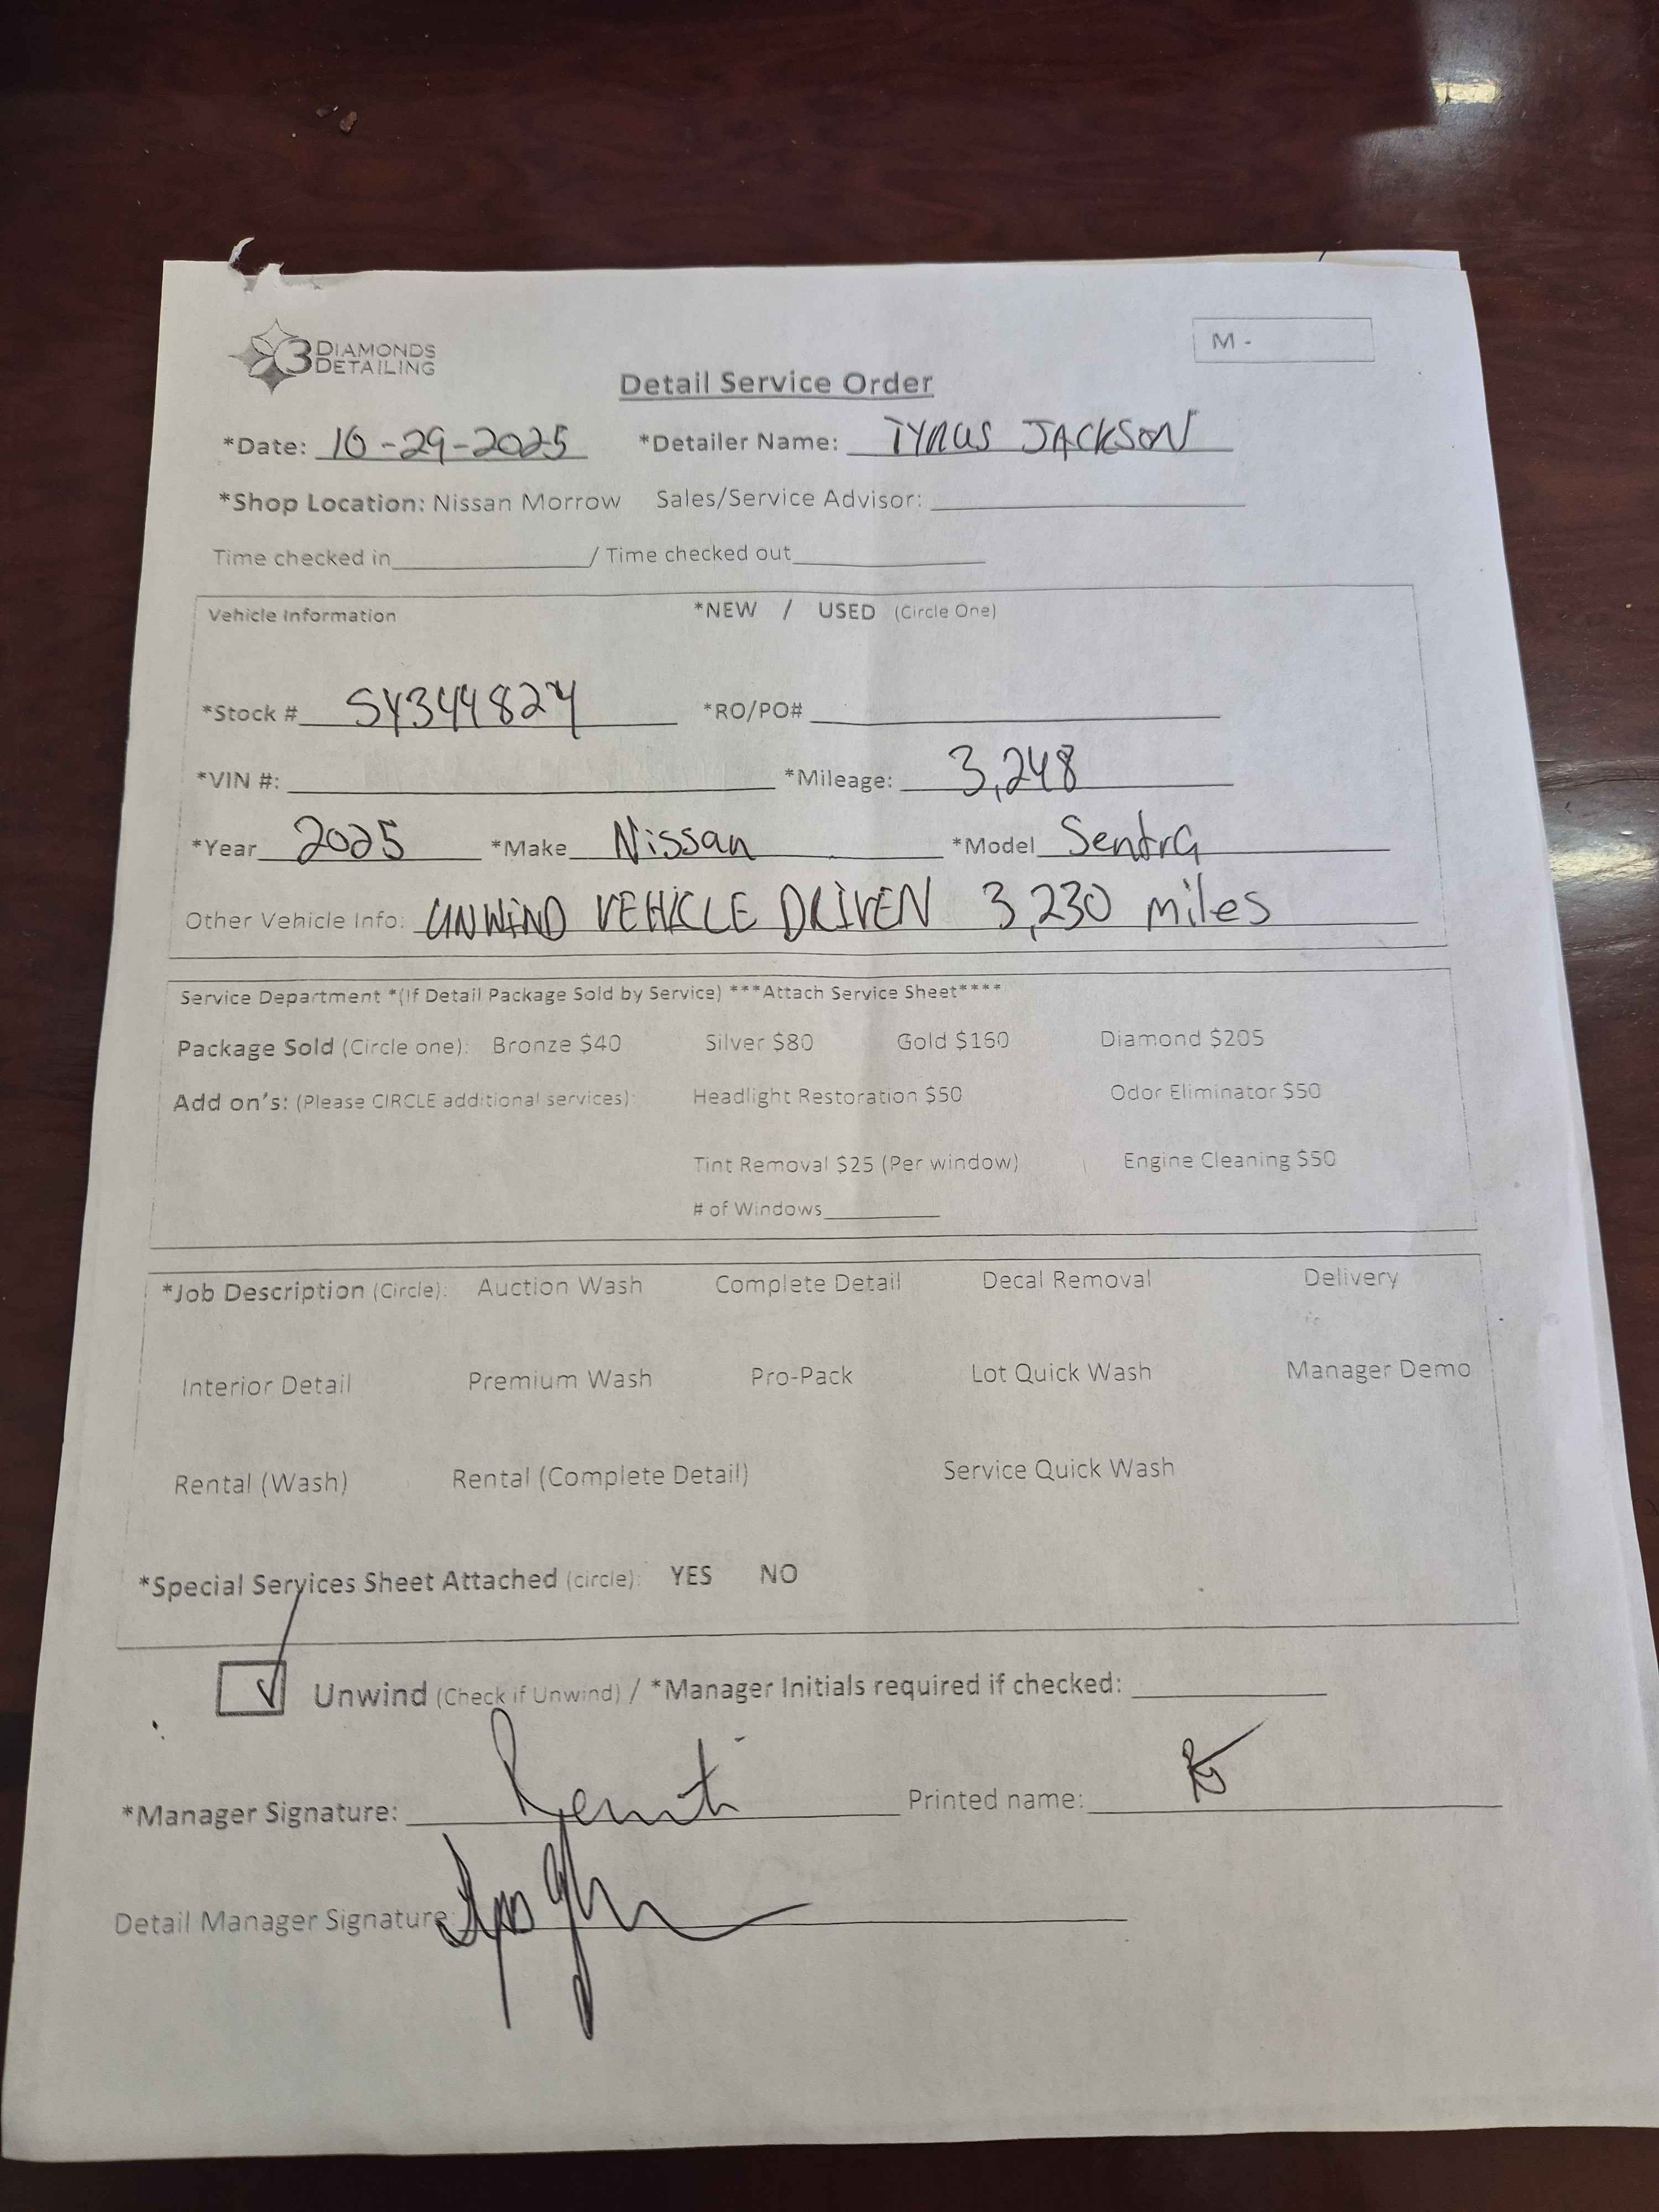 3 DIAMONDS DETAILING
M -
Detail Service Order
*Date: 10-29-2025 *Detailer Name: TYRUS JACKSON
*Shop Location: Nissan Morrow Sales/Service Advisor:
Time checked in / Time checked out
Vehicle Information *NEW / USED (Circle One)
*Stock # SY344824 *RO/PO#
*VIN #: *Mileage: 3,248
*Year 2025 *Make Nissan *Model Sentra
Other Vehicle Info: UNWIND VEHICLE DRIVEN 3,230 miles
Service Department *(If Detail Package Sold by Service) ***Attach Service Sheet****
Package Sold (Circle one): Bronze $40 Silver $80 Gold $160 Diamond $205
Add on's: (Please CIRCLE additional services): Headlight Restoration $50 Odor Eliminator $50
Tint Removal $25 (Per window) Engine Cleaning $50
# of Windows
*Job Description (Circle): Auction Wash Complete Detail Decal Removal Delivery
Interior Detail Premium Wash Pro-Pack Lot Quick Wash Manager Demo
Rental (Wash) Rental (Complete Detail) Service Quick Wash
*Special Services Sheet Attached (circle): YES NO
Unwind (Check if Unwind) / *Manager Initials required if checked:
*Manager Signature: Printed name:
Detail Manager Signature: